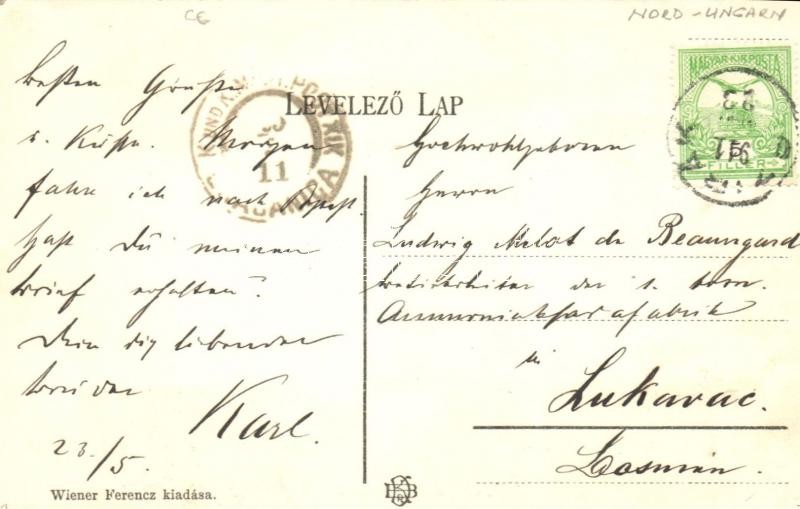 CE
NORD-UNGARN
MAGYAR KIR. POSTA
FILLER
LEVELEZŐ LAP
11
besten Grüsse
u. Küsse. Morgen
fahre ich nach Bpest.
Hast Du meinen
brief erhalten?
Dein dig liebender
bruder
Karl.
23./5.
Hochwohlgeboren
Herrn
Ludwig Melot de Beauregard
der I. bosn.
Ammoniaksodafabrik
in
Lukavac.
Bosnien.
Wiener Ferencz kiadása.